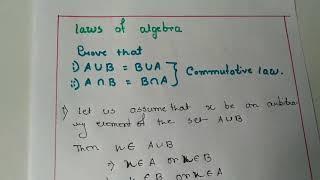 laws of algebra
Prove that
i) A∪B = B∪A
ii) A∩B = B∩A } Commutative law.
i) let us assume that x be an arbitra
ry element of the set A∪B
Then x∈ A∪B
⇒ x∈A or x∈B
⇒ x∈B or x∈A